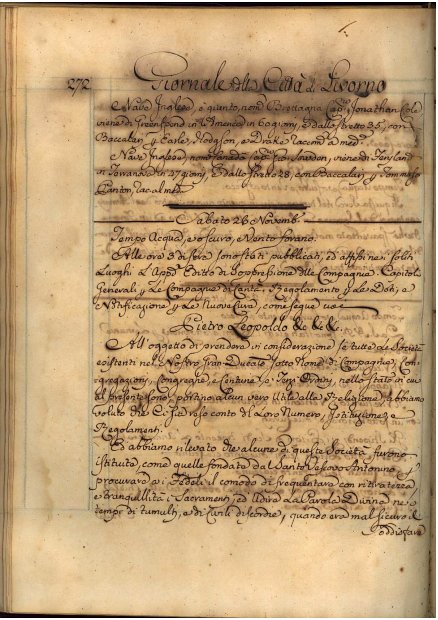 272 Giornale della Città di Livorno
Nave Inglese, è giunto, nom.
viene di in America in 60 giorni, e dallo stretto 35, con
Baccalari
Nave Inglese, nom. Canada Cap.º viene di
in Terranova in 27 giorni, e dallo stretto 28, con Baccalari
Sabato 26 Novemb.
Tempo Acqua, e oscuro, e Vento forano.
Alle ore 3 di sera sono stati pubblicati, ed affissi ne i soliti
Luoghi l'App.º Editto di soppressione delle Compagnie, Capitoli
Generali, p. le Compagnie di Carità, Regolamento p. le Doti, e
Notificazione p. le Nuove Cure, come segue
Pietro Leopoldo &c &c &c.
All'oggetto di prendere in considerazione se tutte le Società
esistenti nel Nostro Gran-Ducato sotto Nome di Compagnie, Con-
gregazioni, Congreghe, e Centurie, o Terz'Ordini, nello stato in cui
al presente sono, portano alcun vero Utile alla Religione, abbiamo
voluto che Ci sia reso conto di Loro Numero, Istituzione, e
Regolamenti.
Ed abbiamo rilevato che alcune di queste Società furono
istituite, come quelle fondate da Santo Vescovo Antonino, p.
procurare a i Fedeli il comodo di frequentare con ritiratezza
e tranquillità i Sacramenti, ed Udire la Parola Divina ne i
tempi di tumulti, e di Civili discordie, quando era mal sicuro il
soddisfare